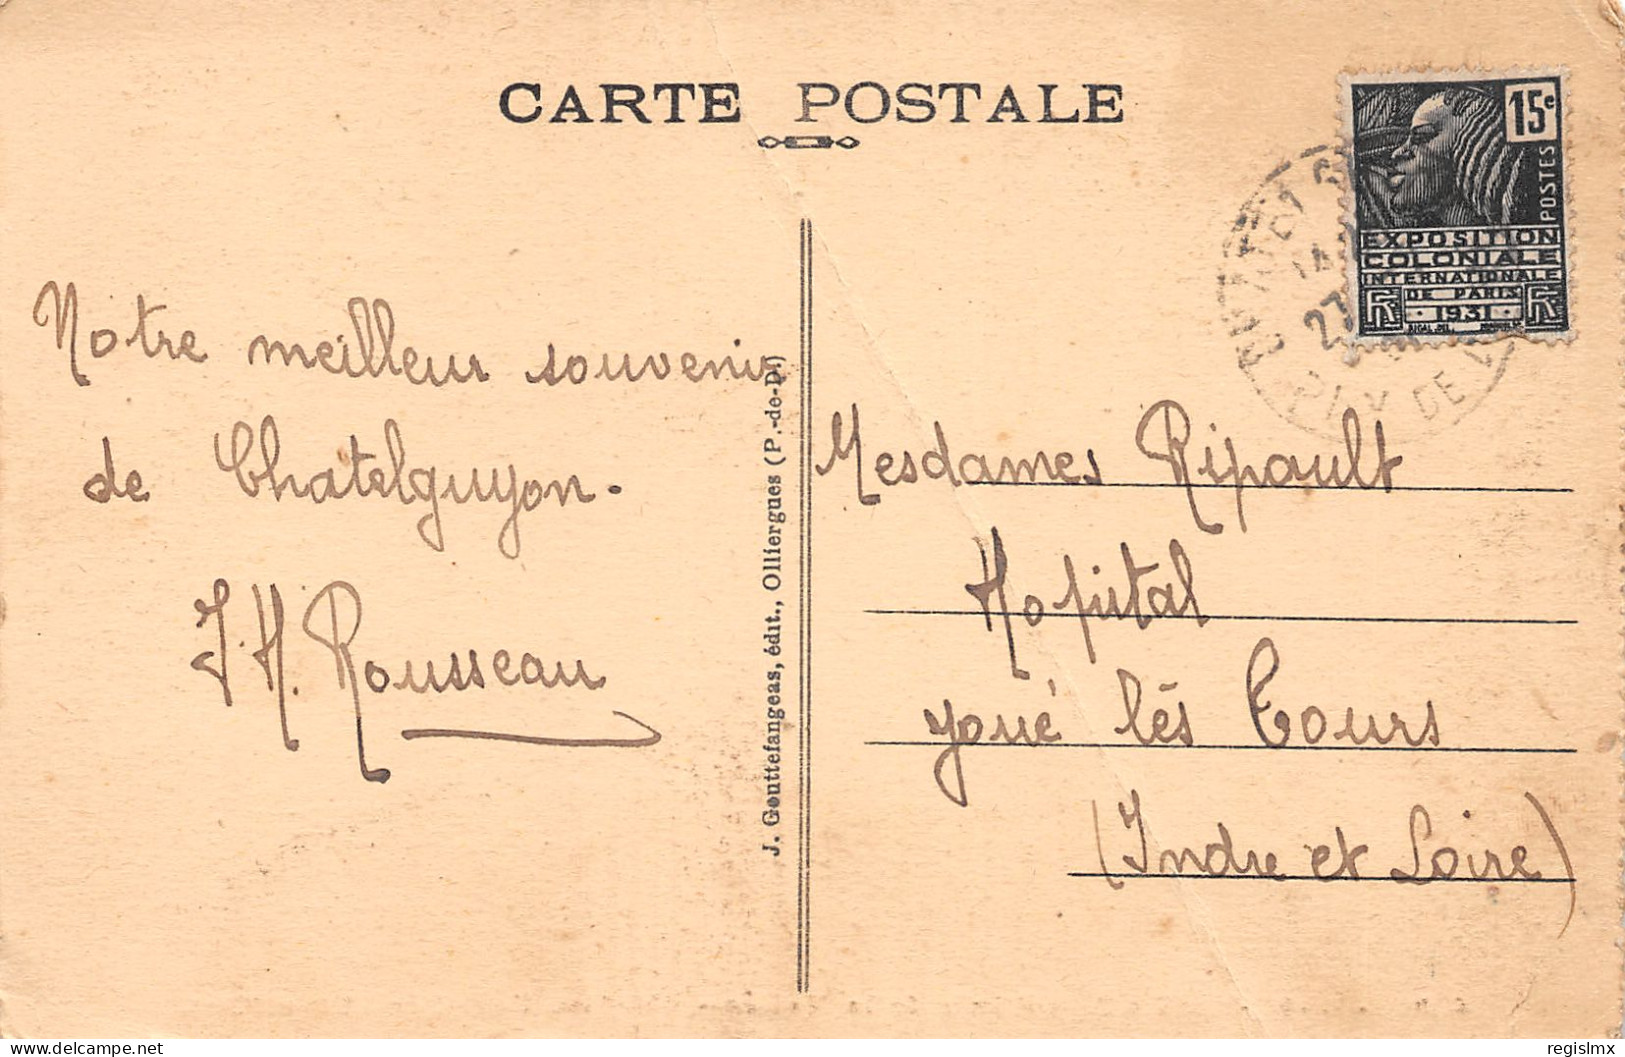 CARTE POSTALE
15c
POSTES
EXPOSITION
COLONIALE
INTERNATIONALE
DE PARIS
RF 1931 RF
27
PUY DE
Notre meilleur souvenir
de Chatelguyon.
J.H. Rousseau
J. Gouttefangeas, édit., Olliergues (P.-de-D.)
Mesdames Ripault
Hopital
Joué lès Tours
(Indre et Loire)
delcampe.net
regislmx